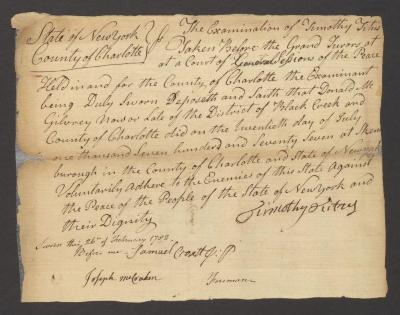 State of New York
County of Charlotte } ss
The Examination of Timothy Titus
Taken Before the Grand Jurors at
at a Court of General Sessions of the Peace
Held in and for the County of Charlotte the Examinant
being Duly Sworn Deposeth and Saith that Donald Mc
Gilvrey Now or Late of the District of Black Creek and
County of Charlotte did on the Twentieth day of July
one thousand Seven hundred and Seventy Seven at Skens
burough in the County of Charlotte and State of New york
Voluntarily Adhere to the Enemies of this State Against
the Peace of the People of the State of New York and
their Dignity
Timothy Titus
Sworn this 26th of February 1782
Before me Samuel Crosett J: P
Joseph McCraken Foreman